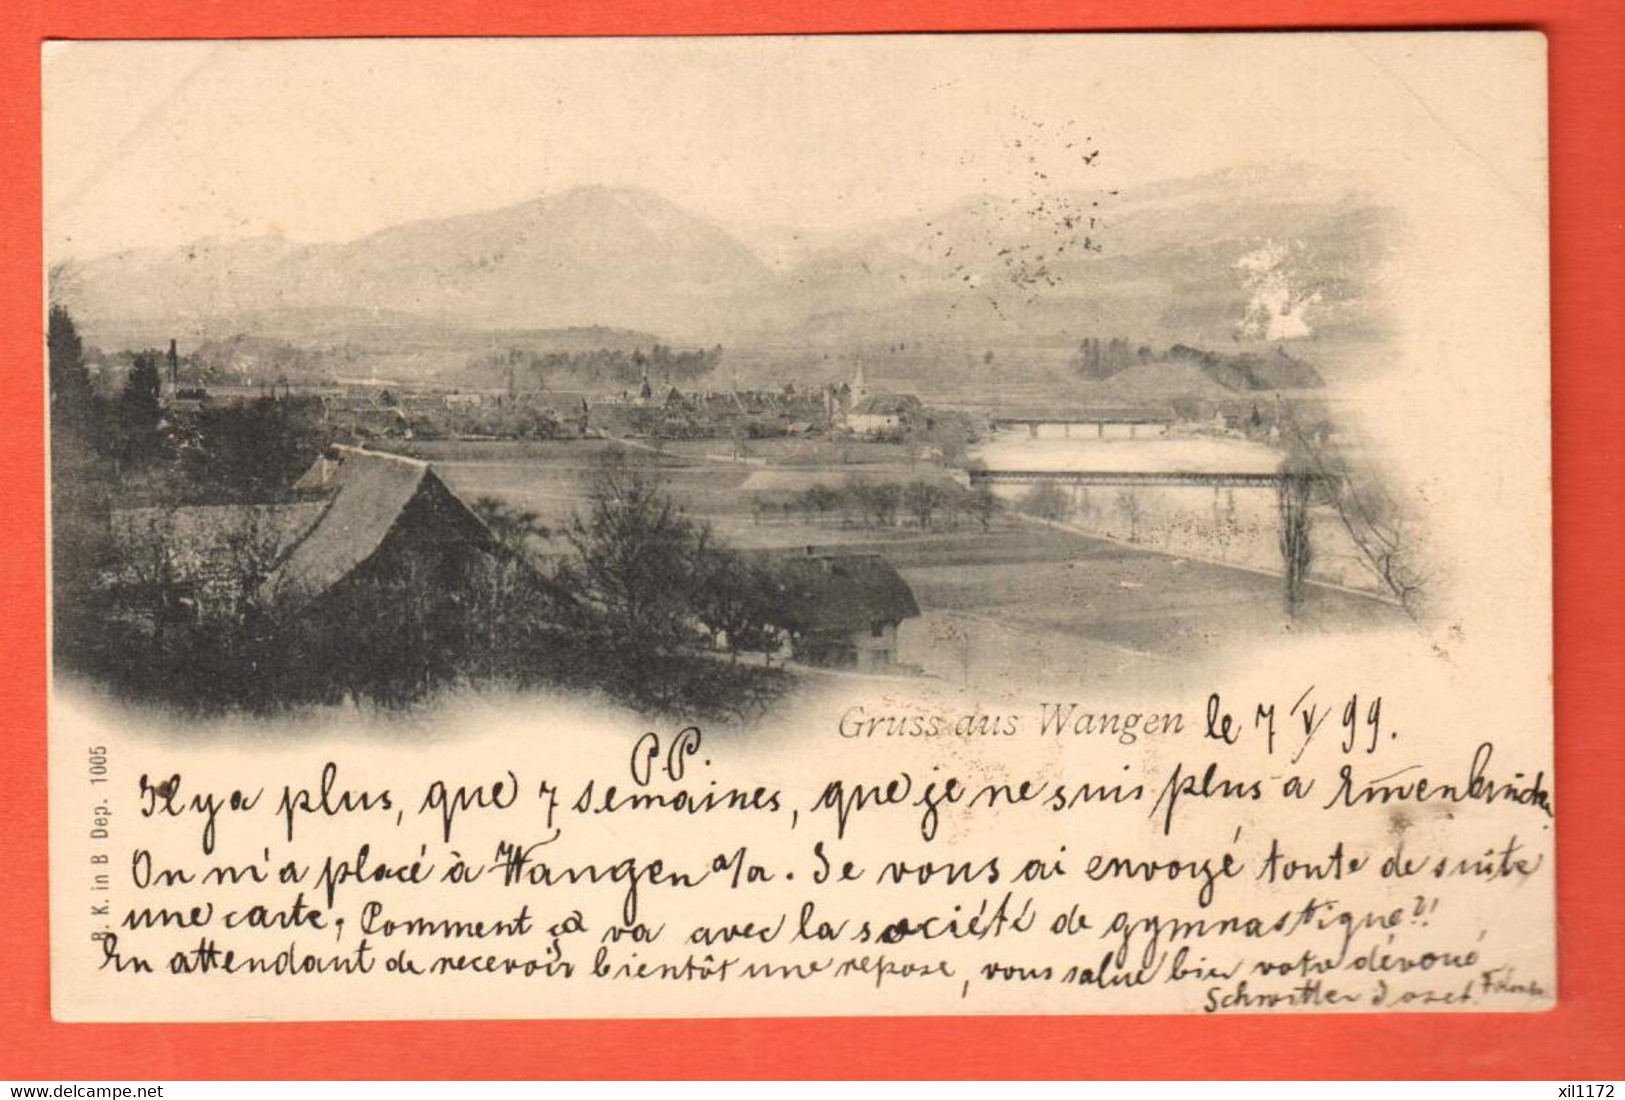 Gruss aus Wangen le 7 V 99.
P.P.
Il y a plus, que 7 semaines, que je ne suis plus a Emmenbrücke.
On m'a placé à Wangen a/a. Je vous ai envoyé toute de suite
une carte, Comment ça va avec la société de gymnastique?!
En attendant de recevoir bientôt une repose, vous salue bien votre dévoué
Schwittler Josef
B. K. in B Dep. 1005
www.delcampe.net
xil1172